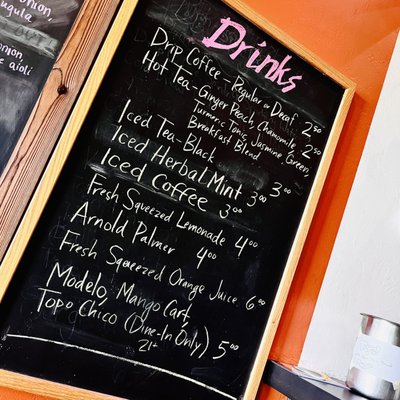 onion,
ugula
onion,
e aioli
Drinks
Drip Coffee - Regular or Decaf 2.50
Hot Tea - Ginger Peach, Chamomile,
Turmeric Tonic, Jasmine, Green,
Breakfast Blend 2.50
Iced Tea - Black 3.00
Iced Herbal Mint 3.00
Iced Coffee 3.00
Fresh Squeezed Lemonade 4.00
Arnold Palmer 4.00
Fresh Squeezed Orange Juice 6.00
Modelo, Mango Cart,
Topo Chico (Dine-In Only) 5.00
21+